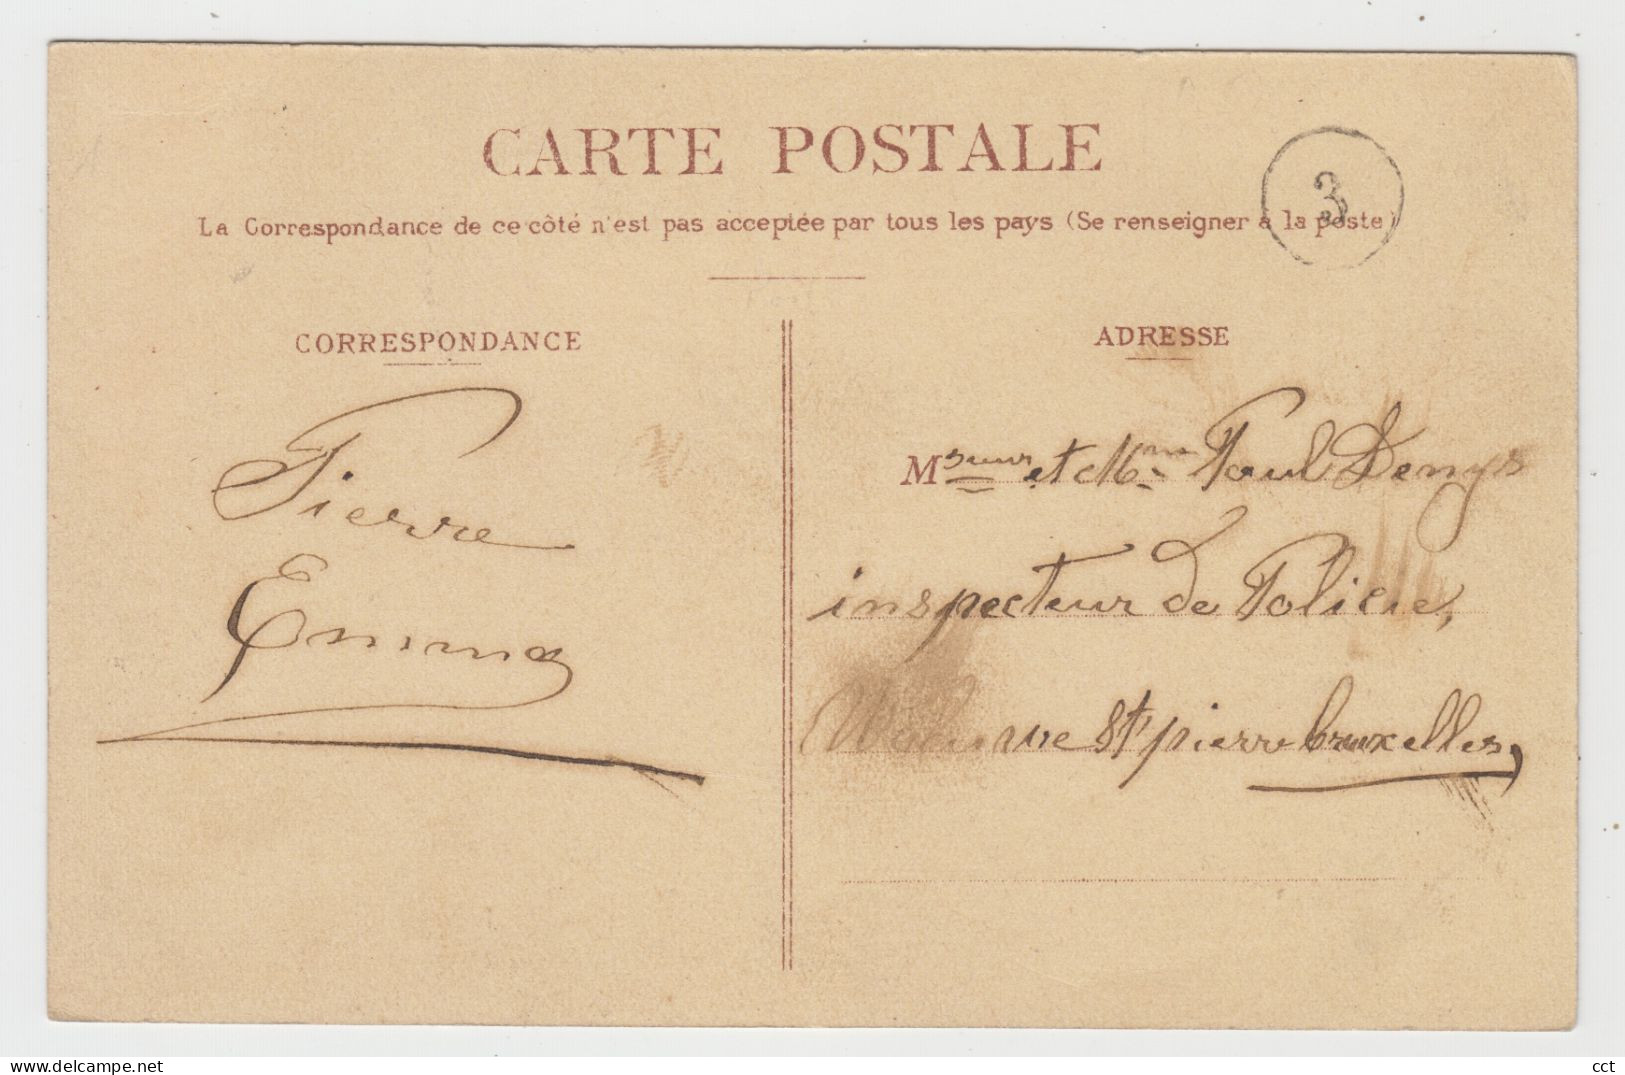 CARTE POSTALE
3
La Correspondance de ce côté n'est pas acceptée par tous les pays (Se renseigner à la poste)
CORRESPONDANCE
ADRESSE
Pierre
Emma
Msieur et Mme Paul Denys
inspecteur de Police,
St pierre bruxelles,
delcampe.net
cct